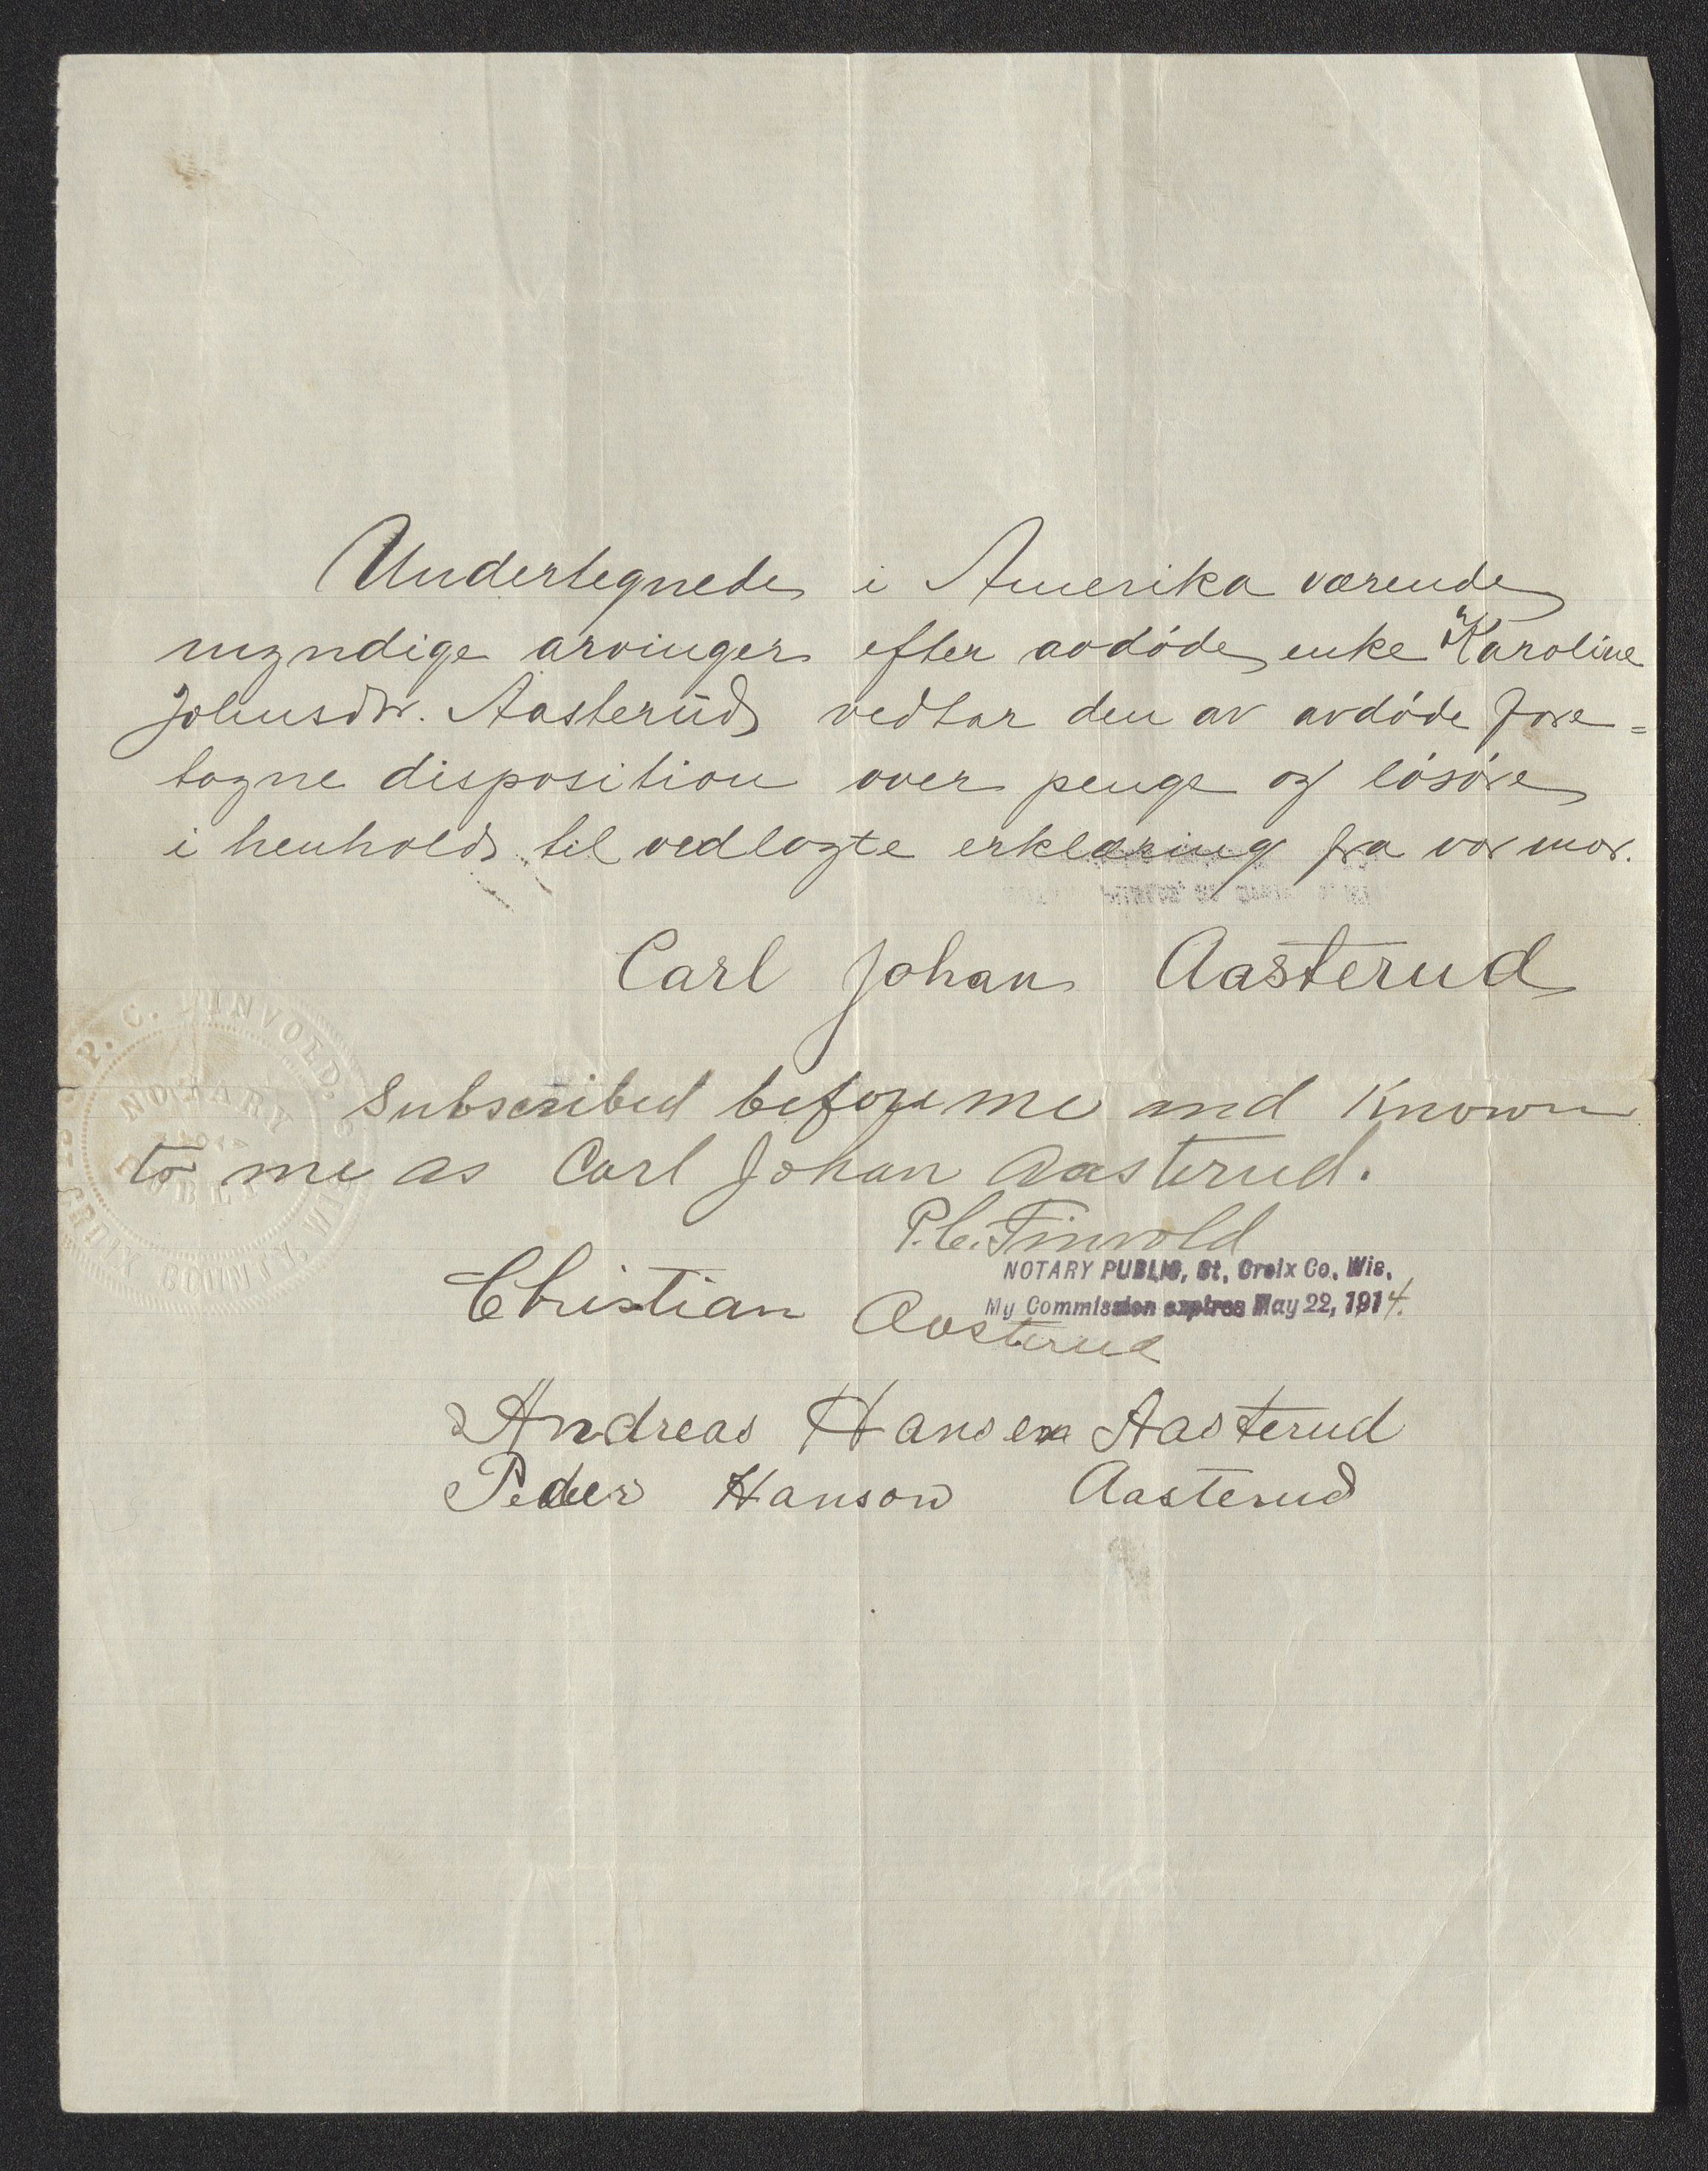 Undertegnede i Amerika værende
myndige arvinger efter avdøde enke Karoline
Johnsdtr. Aasterud vedtar den av avdøde fore=
tagne disposition over penge og løsøre
i henhold til vedlagte erklæring fra vor mor.
Carl Johan Aasterud
Subscribed before me and Known
to me as Carl Johan Aasterud.
P. C. Finvold
NOTARY PUBLIC, St. Croix Co. Wis.
My Commission expires May 22, 1914.
Christian Aasterud
Andreas Hansen Aasterud
Peder Hanson Aasterud
P. C. FINVOLD,
NOTARY
PUBLIC
ST. CROIX COUNTY, WIS.